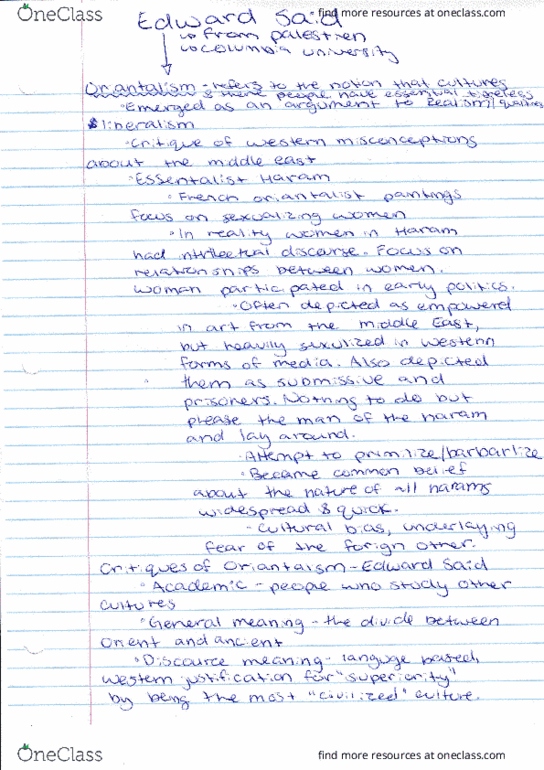 OneClass
find more resources at oneclass.com
Edward Said
↳ from palestien
↳ columbia university
Oriantalism - refers to the notion that cultures
& there people have essential timeless
• Emerged as an argument to realism/qualities
& liberalism
• Critique of western misconceptions
about the middle east
• Essentialist Haram
• French oriantalist paintings
focus on sexualizing women
• In reality women in Haram
had intellectual discourse. Focus on
relationships between women.
Woman participated in early politics.
• Often depicted as empowered
in art from the middle East,
but heavily sexulized in western
forms of media. Also depicted
them as submissive and
prisoners. Nothing to do but
please the man of the haram
and lay around.
• Attempt to primilize/barbarlize
• Became common belief
about the nature of all harams
widespread & quick.
- Cultural bias, underlaying
fear of the forign other.
Critiques of Oriantaism - Edward Said
• Academic - people who study other
cultures
• General meaning - the divide between
orient and ancient
• Discource meaning - languge based,
western justification for "superiority"
by being the most "civilized" culture.
OneClass
find more resources at oneclass.com